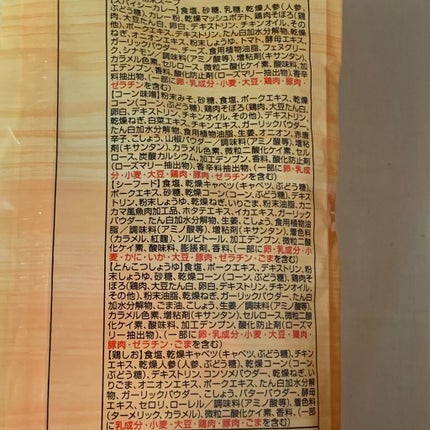 カレー粉、乾燥マッシュポテト、鶏肉そぼろ(鶏
肉、大豆たん白、卵白、デキストリン、チキンオイル、その
他)、ポークエキス、デキストリン、たん白加水分解物、乾燥
ねぎ、オニオンエキス、粉末しょうゆ、トマト、酵母エキス、
ガーリックパウダー
カラメル色素、セルロース、微粒二酸化ケイ素、酸味料、加
工デンプン、香料、酸化防止剤(ローズマリー抽出物)、香
辛料抽出物、(一部に卵・乳成分・小麦・大豆・鶏肉・豚肉・
ゼラチンを含む)
【コーン味噌】粉末みそ、砂糖、食塩、ポークエキス、乾燥
コーン(コーン、ぶどう糖)、鶏肉そぼろ(鶏肉、大豆たん白、
卵白、デキストリン、チキンオイル、その他)、デキストリン、
乾燥ねぎ、白菜エキス、チキンエキス、ガーリックパウダー、
たん白加水分解物、食用植物油脂、生姜、オニオン、唐唐
辛子、こしょう、山椒パウダー/調味料(アミノ酸等)、増粘
剤(キサンタン)、カラメル色素、微粒二酸化ケイ素、セル
ロース、炭酸カルシウム、加工デンプン、香料、酸化防止剤
(ローズマリー抽出物)、香辛料抽出物、(一部に卵・乳成
分・小麦・大豆・鶏肉・豚肉・ゼラチンを含む)
【シーフード】食塩、乾燥キャベツ(キャベツ、ぶどう糖)、
砂糖、ポークエキス、乾燥コーン(コーン、ぶどう糖)、デキス
トリン、粉末しょうゆ、乾燥ねぎ、いりごま、粉末油脂、カニ
カマ風魚肉加工品、ホタテエキス、イカエキス、ガーリック
パウダー、たん白加水分解物、生姜、こしょう、食用植物油
脂/調味料(アミノ酸等)、増粘剤(キサンタン)、着色料
(カラメル、紅麹)、ソルビトール、加工デンプン、微粒二酸
化ケイ素、酸味料、膨脹剤、香料、(一部に卵・乳成分・小
麦・かに・いか・大豆・豚肉・ゼラチン・ごまを含む)
【とんこつしょうゆ】食塩、ポークエキス、デキストリン、粉
末しょうゆ、砂糖、乾燥コーン(コーン、ぶどう糖)、鶏肉そ
ぼろ(鶏肉、大豆たん白、卵白、デキストリン、チキンオイル、
その他)、粉末油脂、乾燥ねぎ、ガーリックパウダー、たん白
加水分解物、ごま油、こしょう、生姜/調味料(アミノ酸等)、
カラメル色素、増粘剤(キサンタン)、セルロース、微粒二酸
化ケイ素、酸味料、加工デンプン、酸化防止剤(ローズマリ
ー抽出物)、香料、(一部に卵・乳成分・小麦・大豆・鶏肉・
豚肉・ゼラチン・ごまを含む)
【鶏しお】食塩、乾燥キャベツ(キャベツ、ぶどう糖)、チキン
エキス、乾燥人参(人参、ぶどう糖)、乾燥コーン(コーン、ぶ
どう糖)、デキストリン、コンソメパウダー、砂糖、乾燥ねぎ、い
りごま、オニオンエキス、ポークエキス、たん白加水分解
物、ガーリックパウダー、こしょう、パウダー、酵母エ
キス、セロリ、ローレル/調味料(アミノ酸等)、着色料
(ターメリック、カラメル)、微粒二酸化ケイ素、香料、(一部
に乳成分・小麦・大豆・鶏肉・豚肉・ごまを含む)